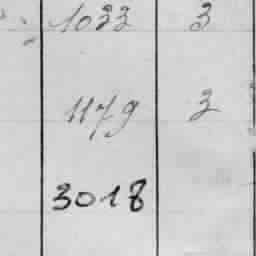 1033 3
1179 3
3018